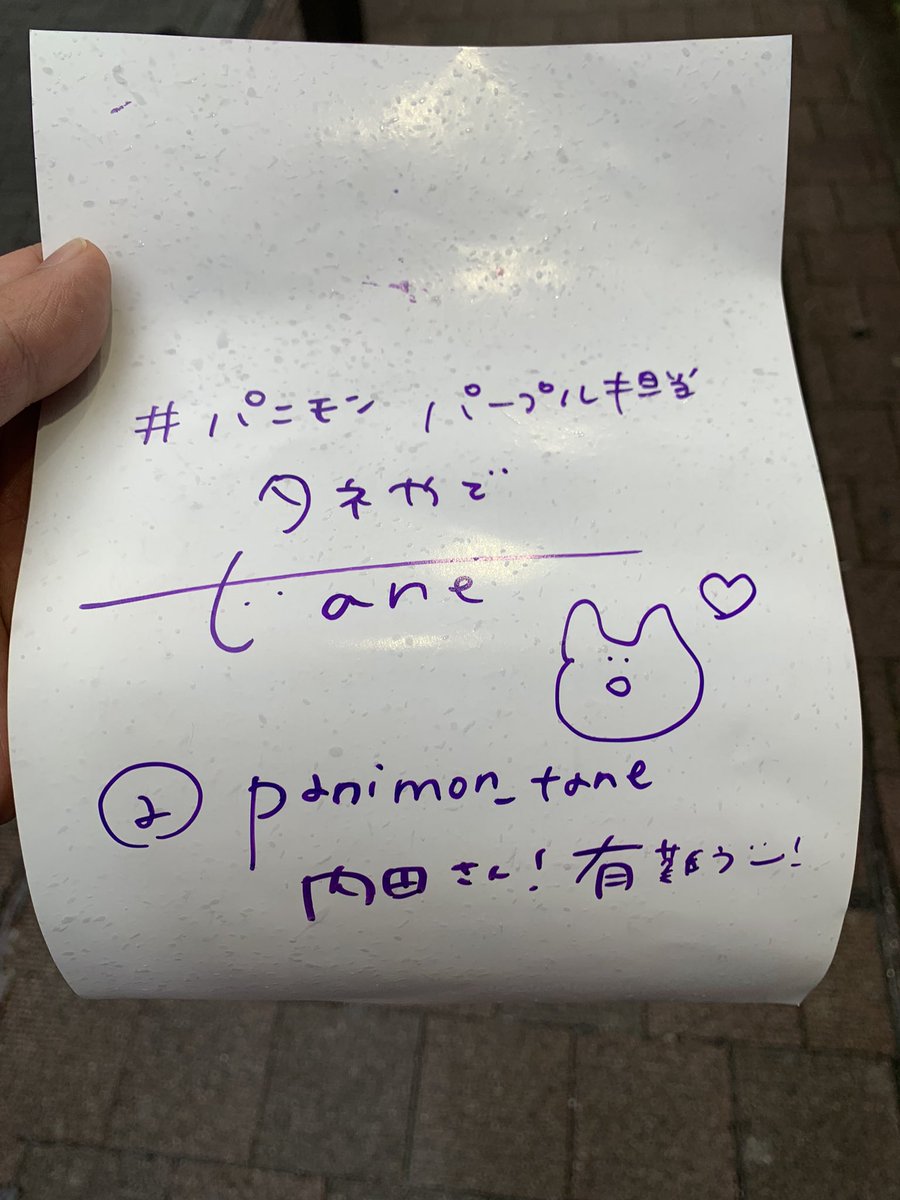 #パニモン パープル担当
タネやで
tane
@panimon_tane
内田さん!有難う!